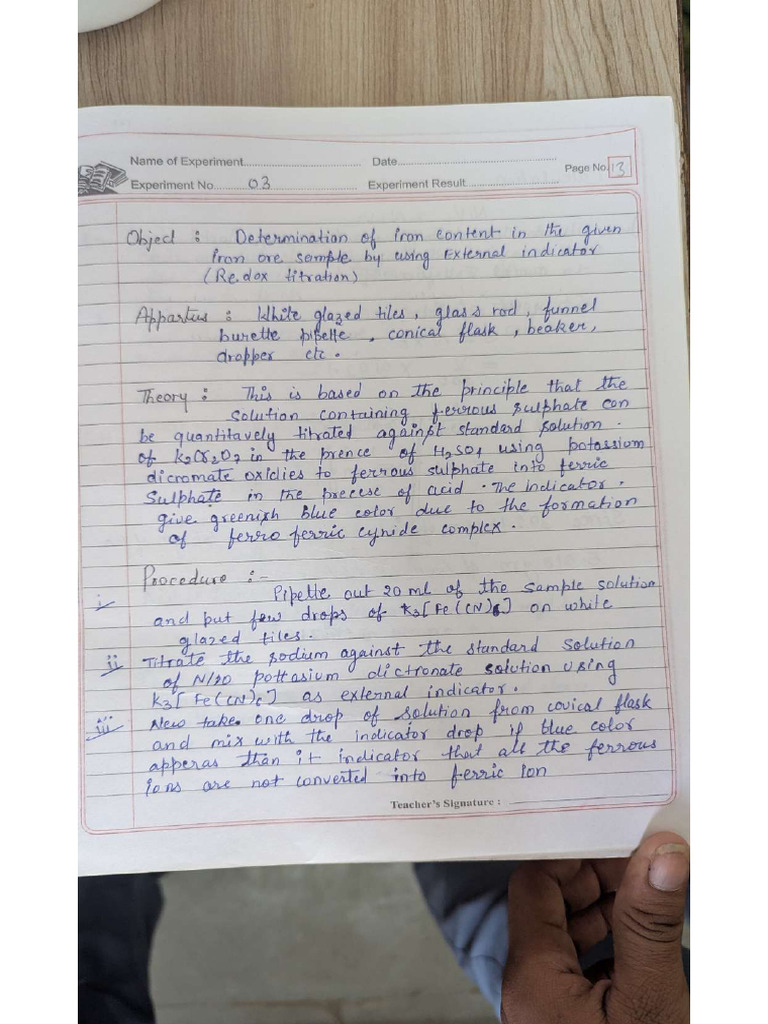 Name of Experiment.................... Date....................
Page No. 13
Experiment No. 03 Experiment Result....................
Object : Determination of iron content in the given
iron ore sample by using External indicator
(Redox titration)
Appartus : White glazed tiles, glass rod, funnel
burette pipette, conical flask, beaker,
dropper etc.
Theory : This is based on the principle that the
solution containing ferrous sulphate can
be quantitavely titrated against standard solution.
of K2Cr2O7 in the prence of H2SO4 using potassium
dicromate oxidies to ferrous sulphate into ferric
Sulphate in the precese of acid. The Indicator.
give greenish blue color due to the formation
of ferro ferric cynide complex.
Procedure :-
i Pipette out 20 ml of the sample solution
and put few drops of K3[Fe(CN)6] on white
glazed tiles.
ii Titrate the sodium against the standard solution
of N/20 pottasium dictronate solution using
K3[Fe(CN)6] as external indicator.
iii New take one drop of solution from covical flask
and mix with the indicator drop if blue color
apperas than it indicator that all the ferrous
ions are not converted into ferric ion
Teacher's Signature : ____________________